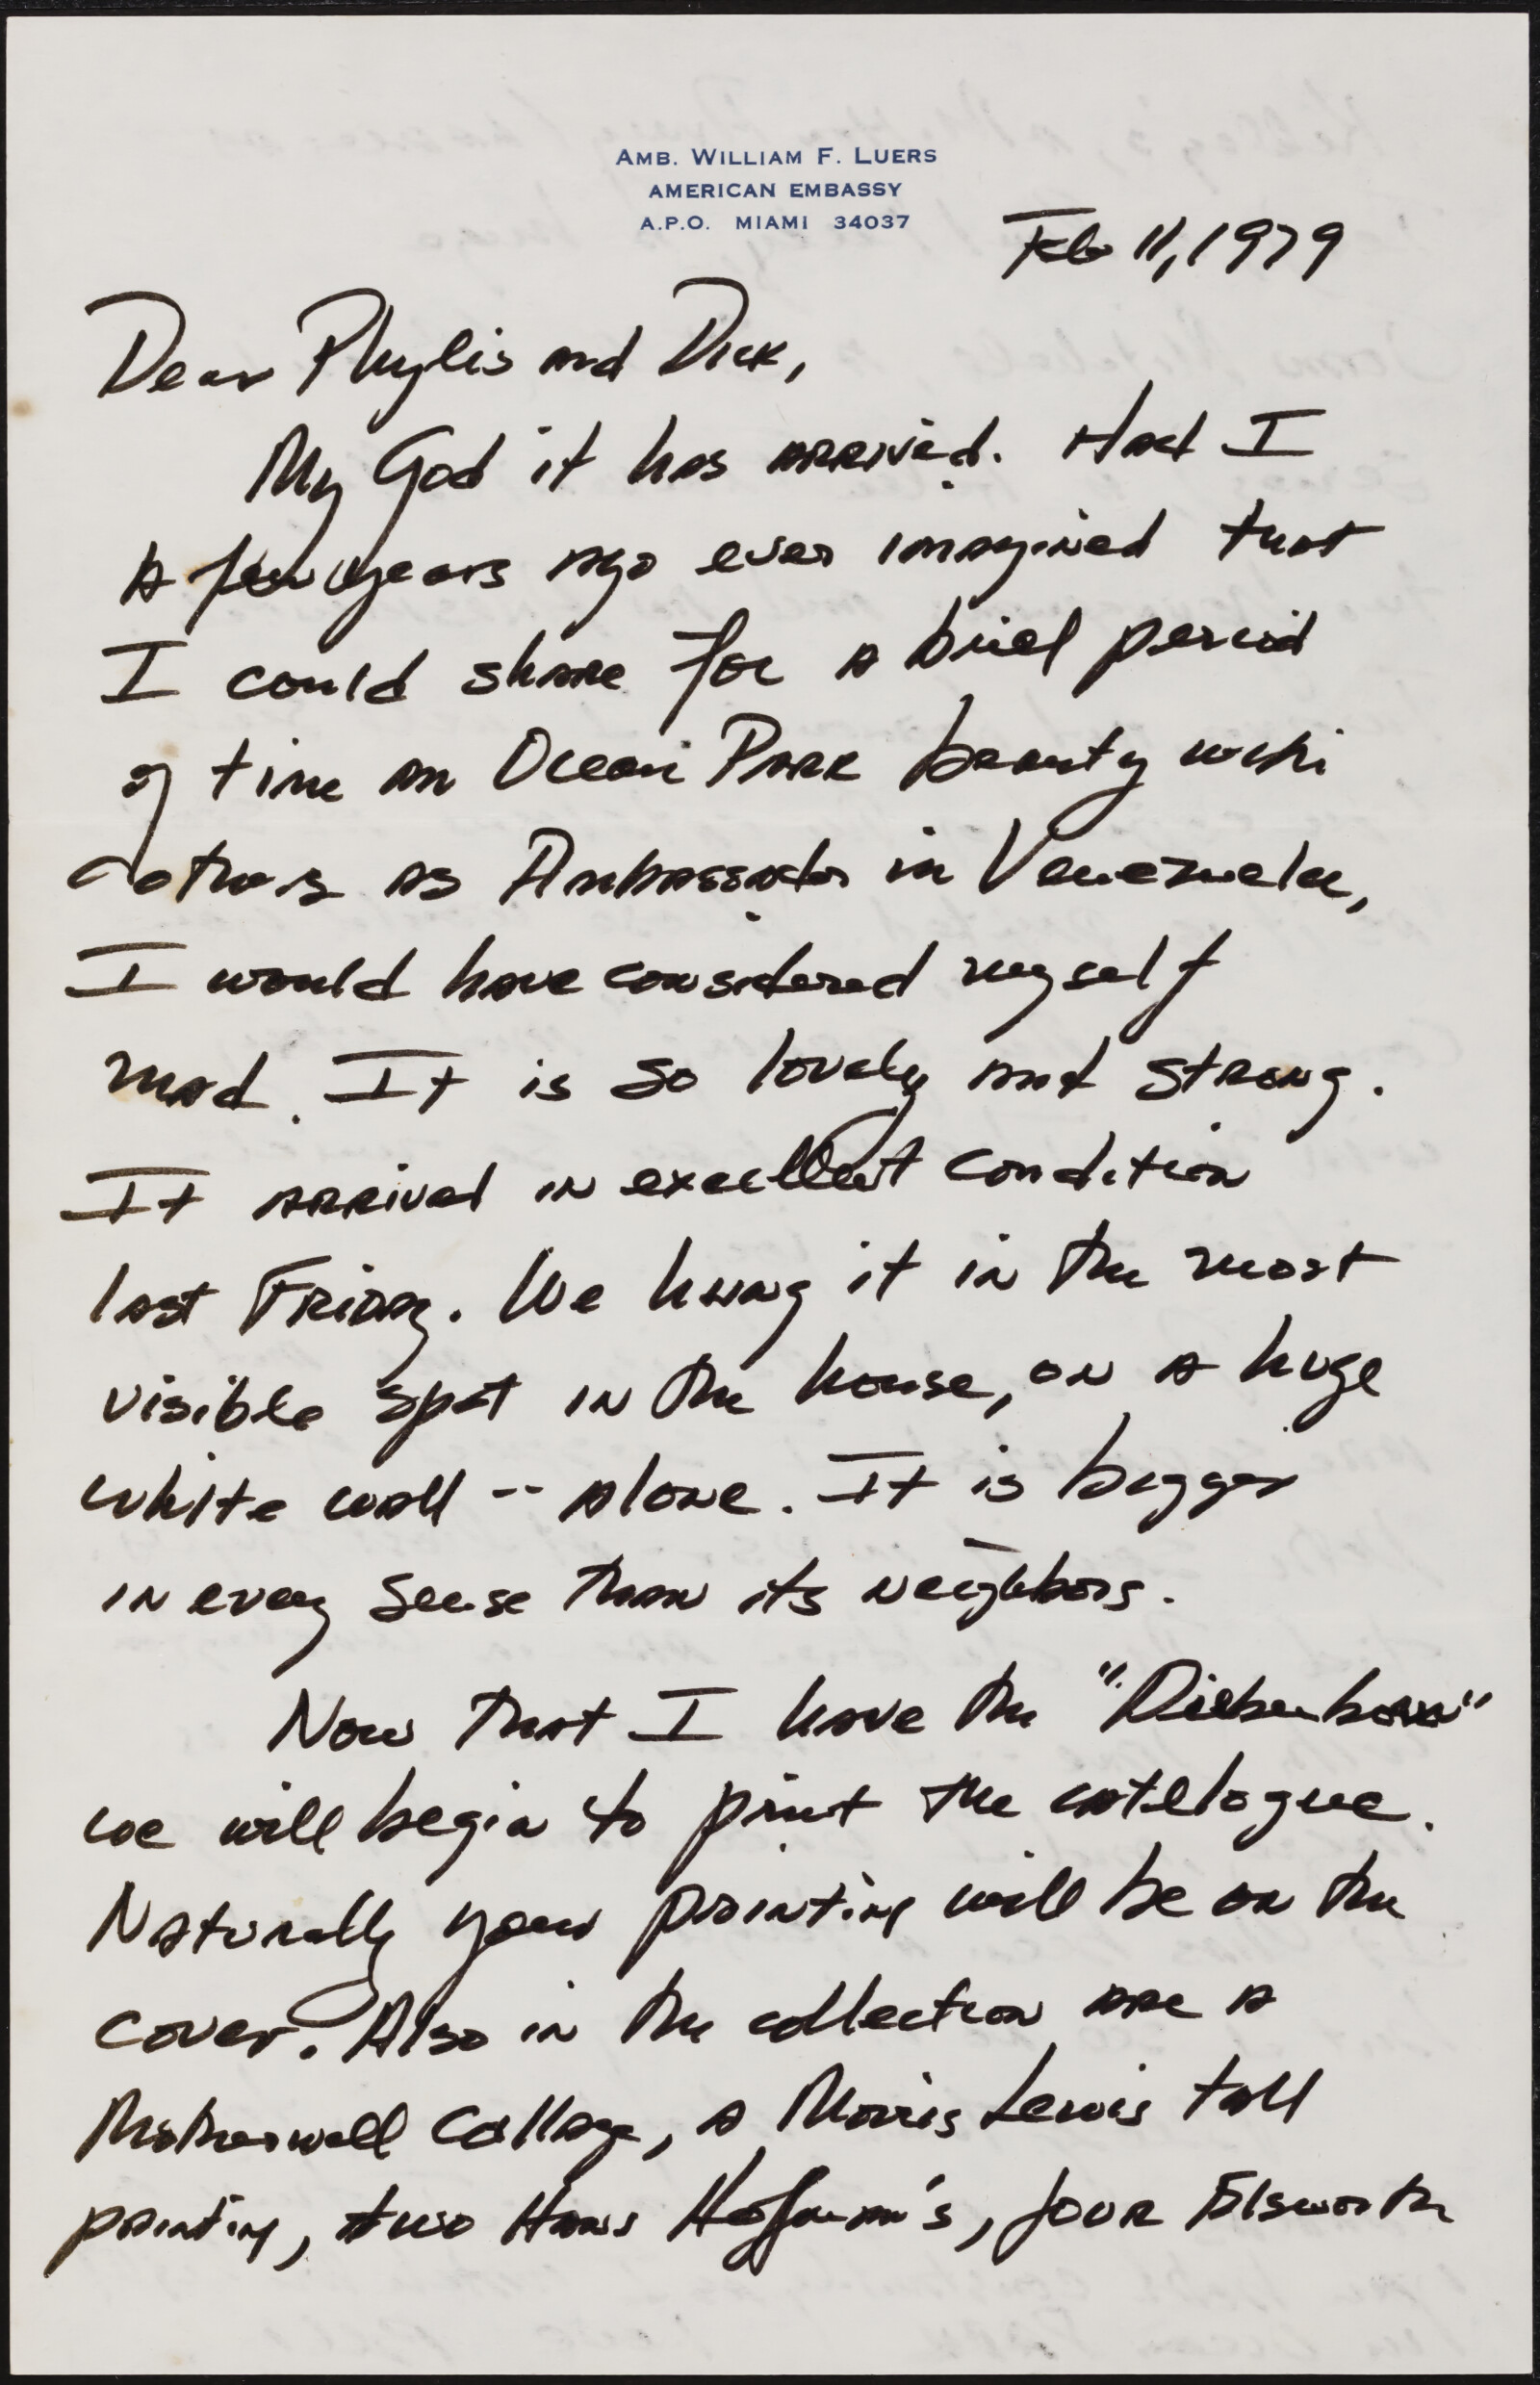 AMB. WILLIAM F. LUERS
AMERICAN EMBASSY
A.P.O. MIAMI 34037
Feb 11, 1979
Dear Phylis and Dick,
My God it has arrived. Had I
a few years ago ever imagined that
I could share for a brief period
of time an Ocean Park beauty with
others as Ambassador in Venezuela,
I would have considered myself
mad. It is so lovely and strong.
It arrived in excellent condition
last Friday. We hung it in the most
visible spot in the house, on a huge
white wall -- alone. It is bigger
in every sense than its neighbors.
Now that I have the "Diebenborn"
we will begin to print the catelogue.
Naturally your painting will be on the
cover. Also in the collection are a
Motherwell collage, a Morris Lewis tall
painting, two Hans Hofmann's, four Elsworth